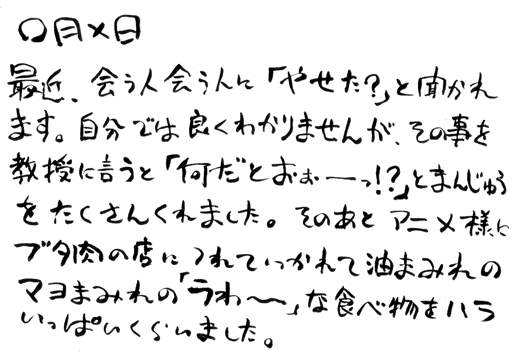 〇月×日
最近、会う人会う人に「やせた?」と聞かれ
ます。自分では良くわかりませんが、その事を
教授に言うと「何だとおぉーっ!?」とまんじゅう
をたくさんくれました。そのあとアニメ様に
ブタ肉の店につれていかれて油まみれの
マヨまみれの「うわ〜〜」な食べ物をハラ
いっぱいくらいました。